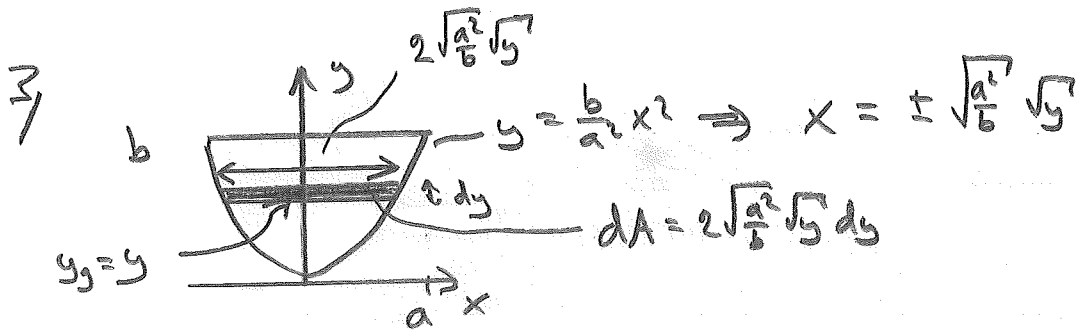 2√(a²/b) √y
3, y
b y = b/a² x² ⇒ x = ± √(a²/b) √y
dy
dA = 2√(a²/b) √y dy
y_g = y
a x